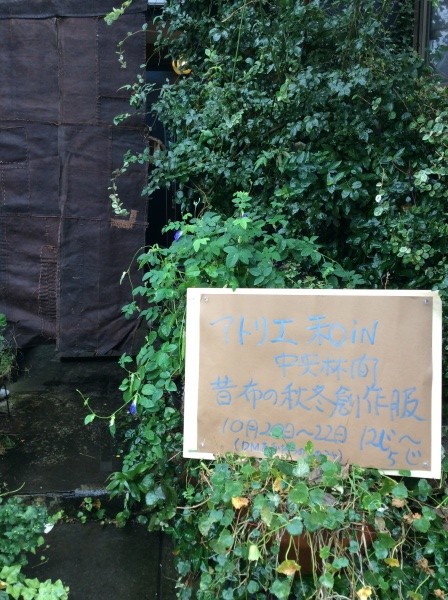 アトリエ 和in
中央林間
昔布の秋冬創作服
10月20日〜22日 12じ〜
5じ